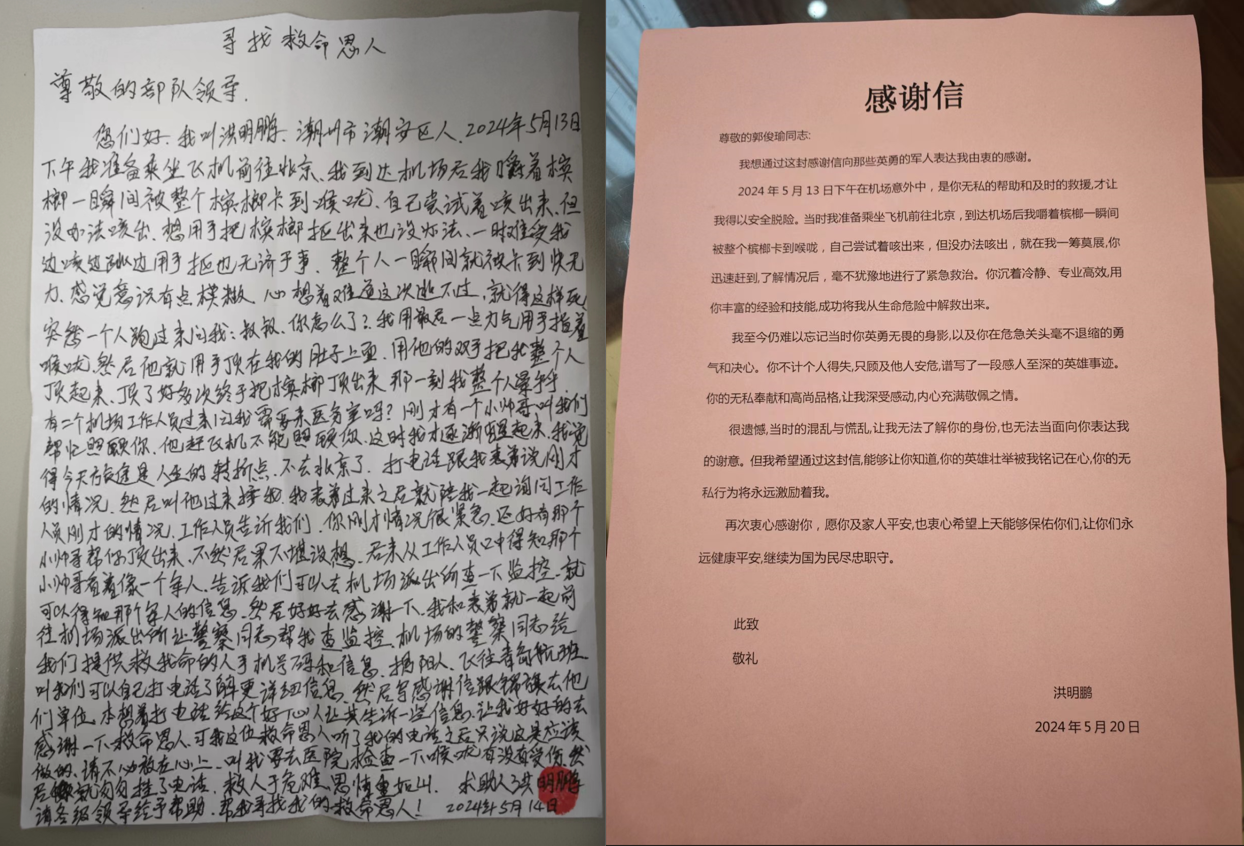 寻找救命恩人
尊敬的部队领导.
您们好.我叫洪明鹏.潮州市潮安区人.2024年5月13日
下午我准备乘坐飞机前往北京、我到达机场后我嚼着槟
榔一瞬间被整个槟榔卡到喉咙.自己尝试着咳出来.但
没办法咳出.想用手把槟榔抠出来也没办法、一时难受我
边咳边跳边用手抠也无济于事.整个人一瞬间就被卡到快无
力.感觉意识有点模糊 心想着难道这次逃不过,就得这样死
突然一个人跑过来问我:叔叔.你怎么了?我用最后一点力气用手指着
喉咙.然后他就用手顶在我的肚子上面.用他的双手把我整个人
顶起来、顶了好多次终于把槟榔顶出来 那一刻我整个人晕乎乎
有二个机场工作人员过来问我需要来医务室吗?刚才有一个小帅哥叫我们
帮忙照顾你.他赶飞机不能照顾你.这时我才逐渐醒起来.我觉
得今天应该是人生的转折点.不去北京了.打电话跟我表弟说刚才
的情况.然后叫他过来接我.我表弟过来之后就陪我一起询问工作
人员刚才的情况.工作人员告诉我们.你刚才情况很紧急.还好有那个
小帅哥帮你顶出来.不然后果不堪设想.后来从工作人员口中得知那个
小帅哥看着像一个军人.告诉我们可以去机场派出所查一下监控.就
可以得知那个军人的信息.然后好好去感谢一下.我和表弟就一起前
往机场派出所让警察同志帮我查监控.机场的警察同志给
我们提供救我命的人手机号码和信息.揭阳人.飞往青岛航班
叫我们可以自己打电话了解更详细信息.然后写感谢信跟锦旗去他
们单位.本想着打电话给这个好心人让其告诉一些信息.让我好好的去
感谢一下救命恩人.可我这位救命恩人听了我的电话之后只说这是应该
做的.请不必放在心上.叫我要去医院检查一下喉咙有没有受伤.然
后就匆匆挂了电话.救人于危难.恩情重如山. 求助人:洪明鹏
请各级领导给予帮助.帮我寻找我的救命恩人! 2024年5月14日
感谢信
尊敬的郭俊瑜同志:
我想通过这封感谢信向那些英勇的军人表达我由衷的感谢。
2024年5月13日下午在机场意外中，是你无私的帮助和及时的救援,才让
我得以安全脱险。当时我准备乘坐飞机前往北京，到达机场后我嚼着槟榔一瞬间
被整个槟榔卡到喉咙，自己尝试着咳出来，但没办法咳出，就在我一筹莫展,你
迅速赶到,了解情况后，毫不犹豫地进行了紧急救治。你沉着冷静、专业高效,用
你丰富的经验和技能,成功将我从生命危险中解救出来。
我至今仍难以忘记当时你英勇无畏的身影,以及你在危急关头毫不退缩的勇
气和决心。你不计个人得失,只顾及他人安危,谱写了一段感人至深的英雄事迹。
你的无私奉献和高尚品格,让我深受感动,内心充满敬佩之情。
很遗憾,当时的混乱与慌乱,让我无法了解你的身份,也无法当面向你表达我
的谢意。但我希望通过这封信,能够让你知道,你的英雄壮举被我铭记在心,你的无
私行为将永远激励着我。
再次衷心感谢你，愿你及家人平安,也衷心希望上天能够保佑你们,让你们永
远健康平安,继续为国为民尽忠职守。
此致
敬礼
洪明鹏
2024年5月20日